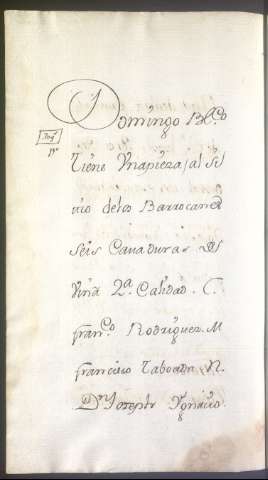 Domingo Blco
Tiene Vnapieza al si
tio delos Barrocanes
seis Cauaduras de
Viña 2ª Calidad. C.
Franco Rodriguez. M
francisco Taboada, N.
Dn Joseph Ygnacio.